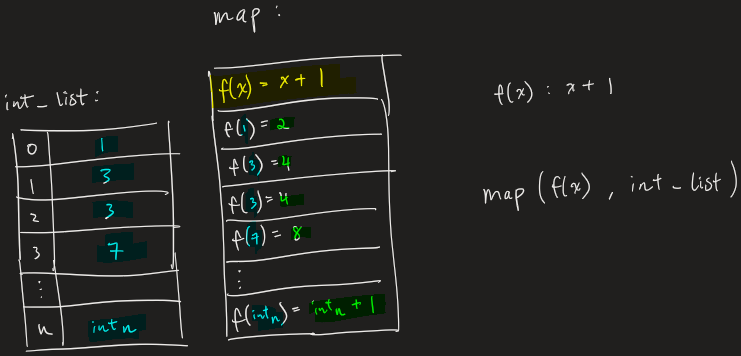 map :
int_list :
0 1
1 3
2 3
3 7
⋮
n intₙ
f(x) = x + 1
f(1) = 2
f(3) = 4
f(3) = 4
f(7) = 8
⋮
f(intₙ) = intₙ + 1
f(x) : x + 1
map (f(x) , int_list)